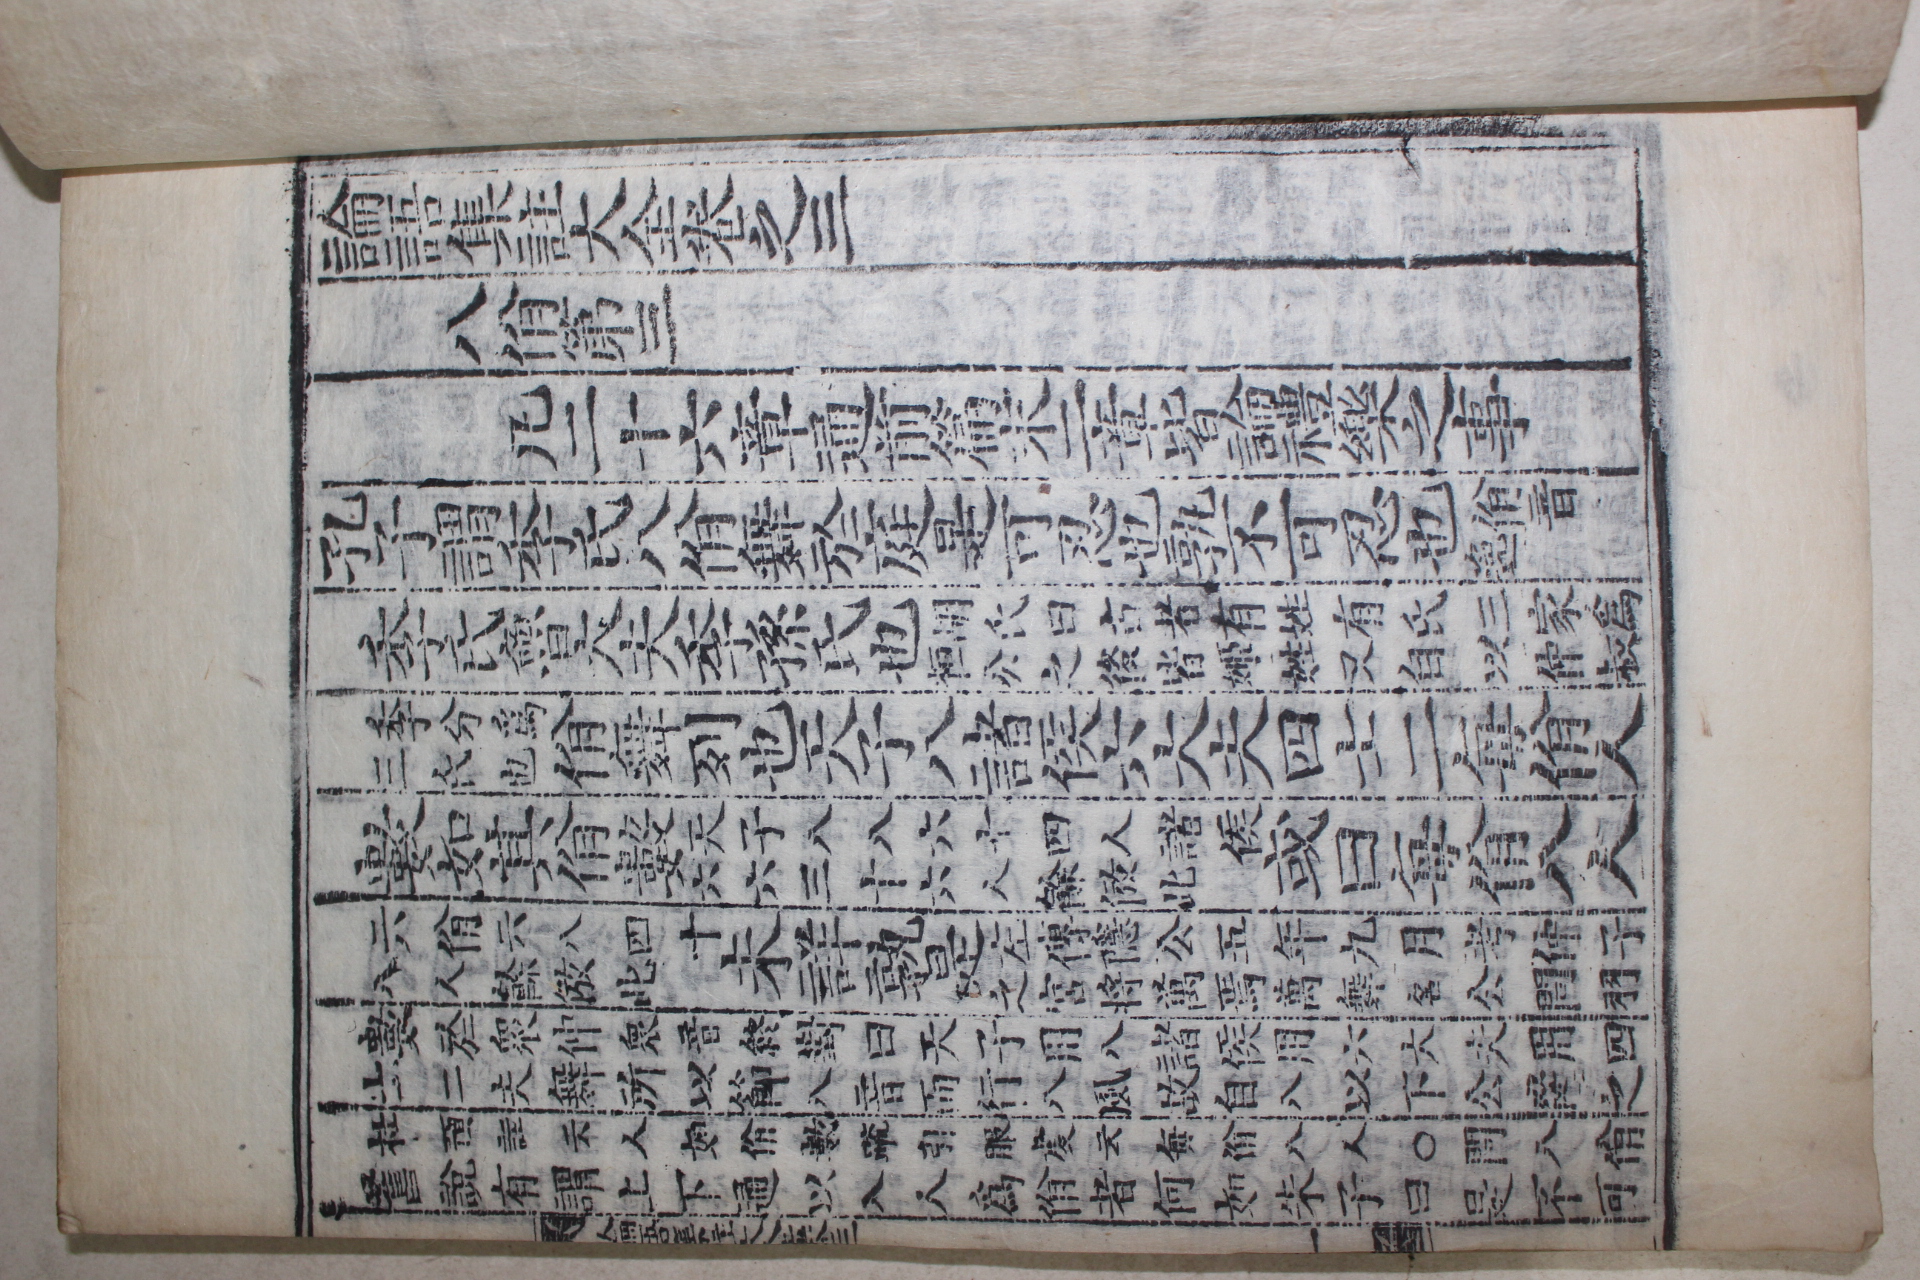 論語集註大全卷之三
八佾第三
凡二十六章通前篇末二章皆論禮樂之事
孔子謂季氏八佾舞於庭是可忍也孰不可忍也
佾音
逸
季氏魯大夫季孫氏也
胡氏曰古者有姓有氏三家爲
桓公之後皆姬姓又自以仲叔
季分爲
三氏也
佾舞列也天子八諸侯六大夫四士二每佾人
數如其佾數
天子八八六十四人諸侯
六六三十六人餘倣此
或曰每佾八人
六佾六八四十
八人餘倣此
未詳孰是
左傳隱公五年九月考仲子
之宮將萬焉萬舞名公問羽
數於衆仲衆音終對曰天子用八諸侯用六大夫用四
士二夫舞所以節八音而行八風故自八以下公從之
杜預註云人如佾數疏引服虔云每佾八人○問八佾
舊說有謂上下通以八人爲佾者何如朱子曰是不可
論語集註大全卷三
一